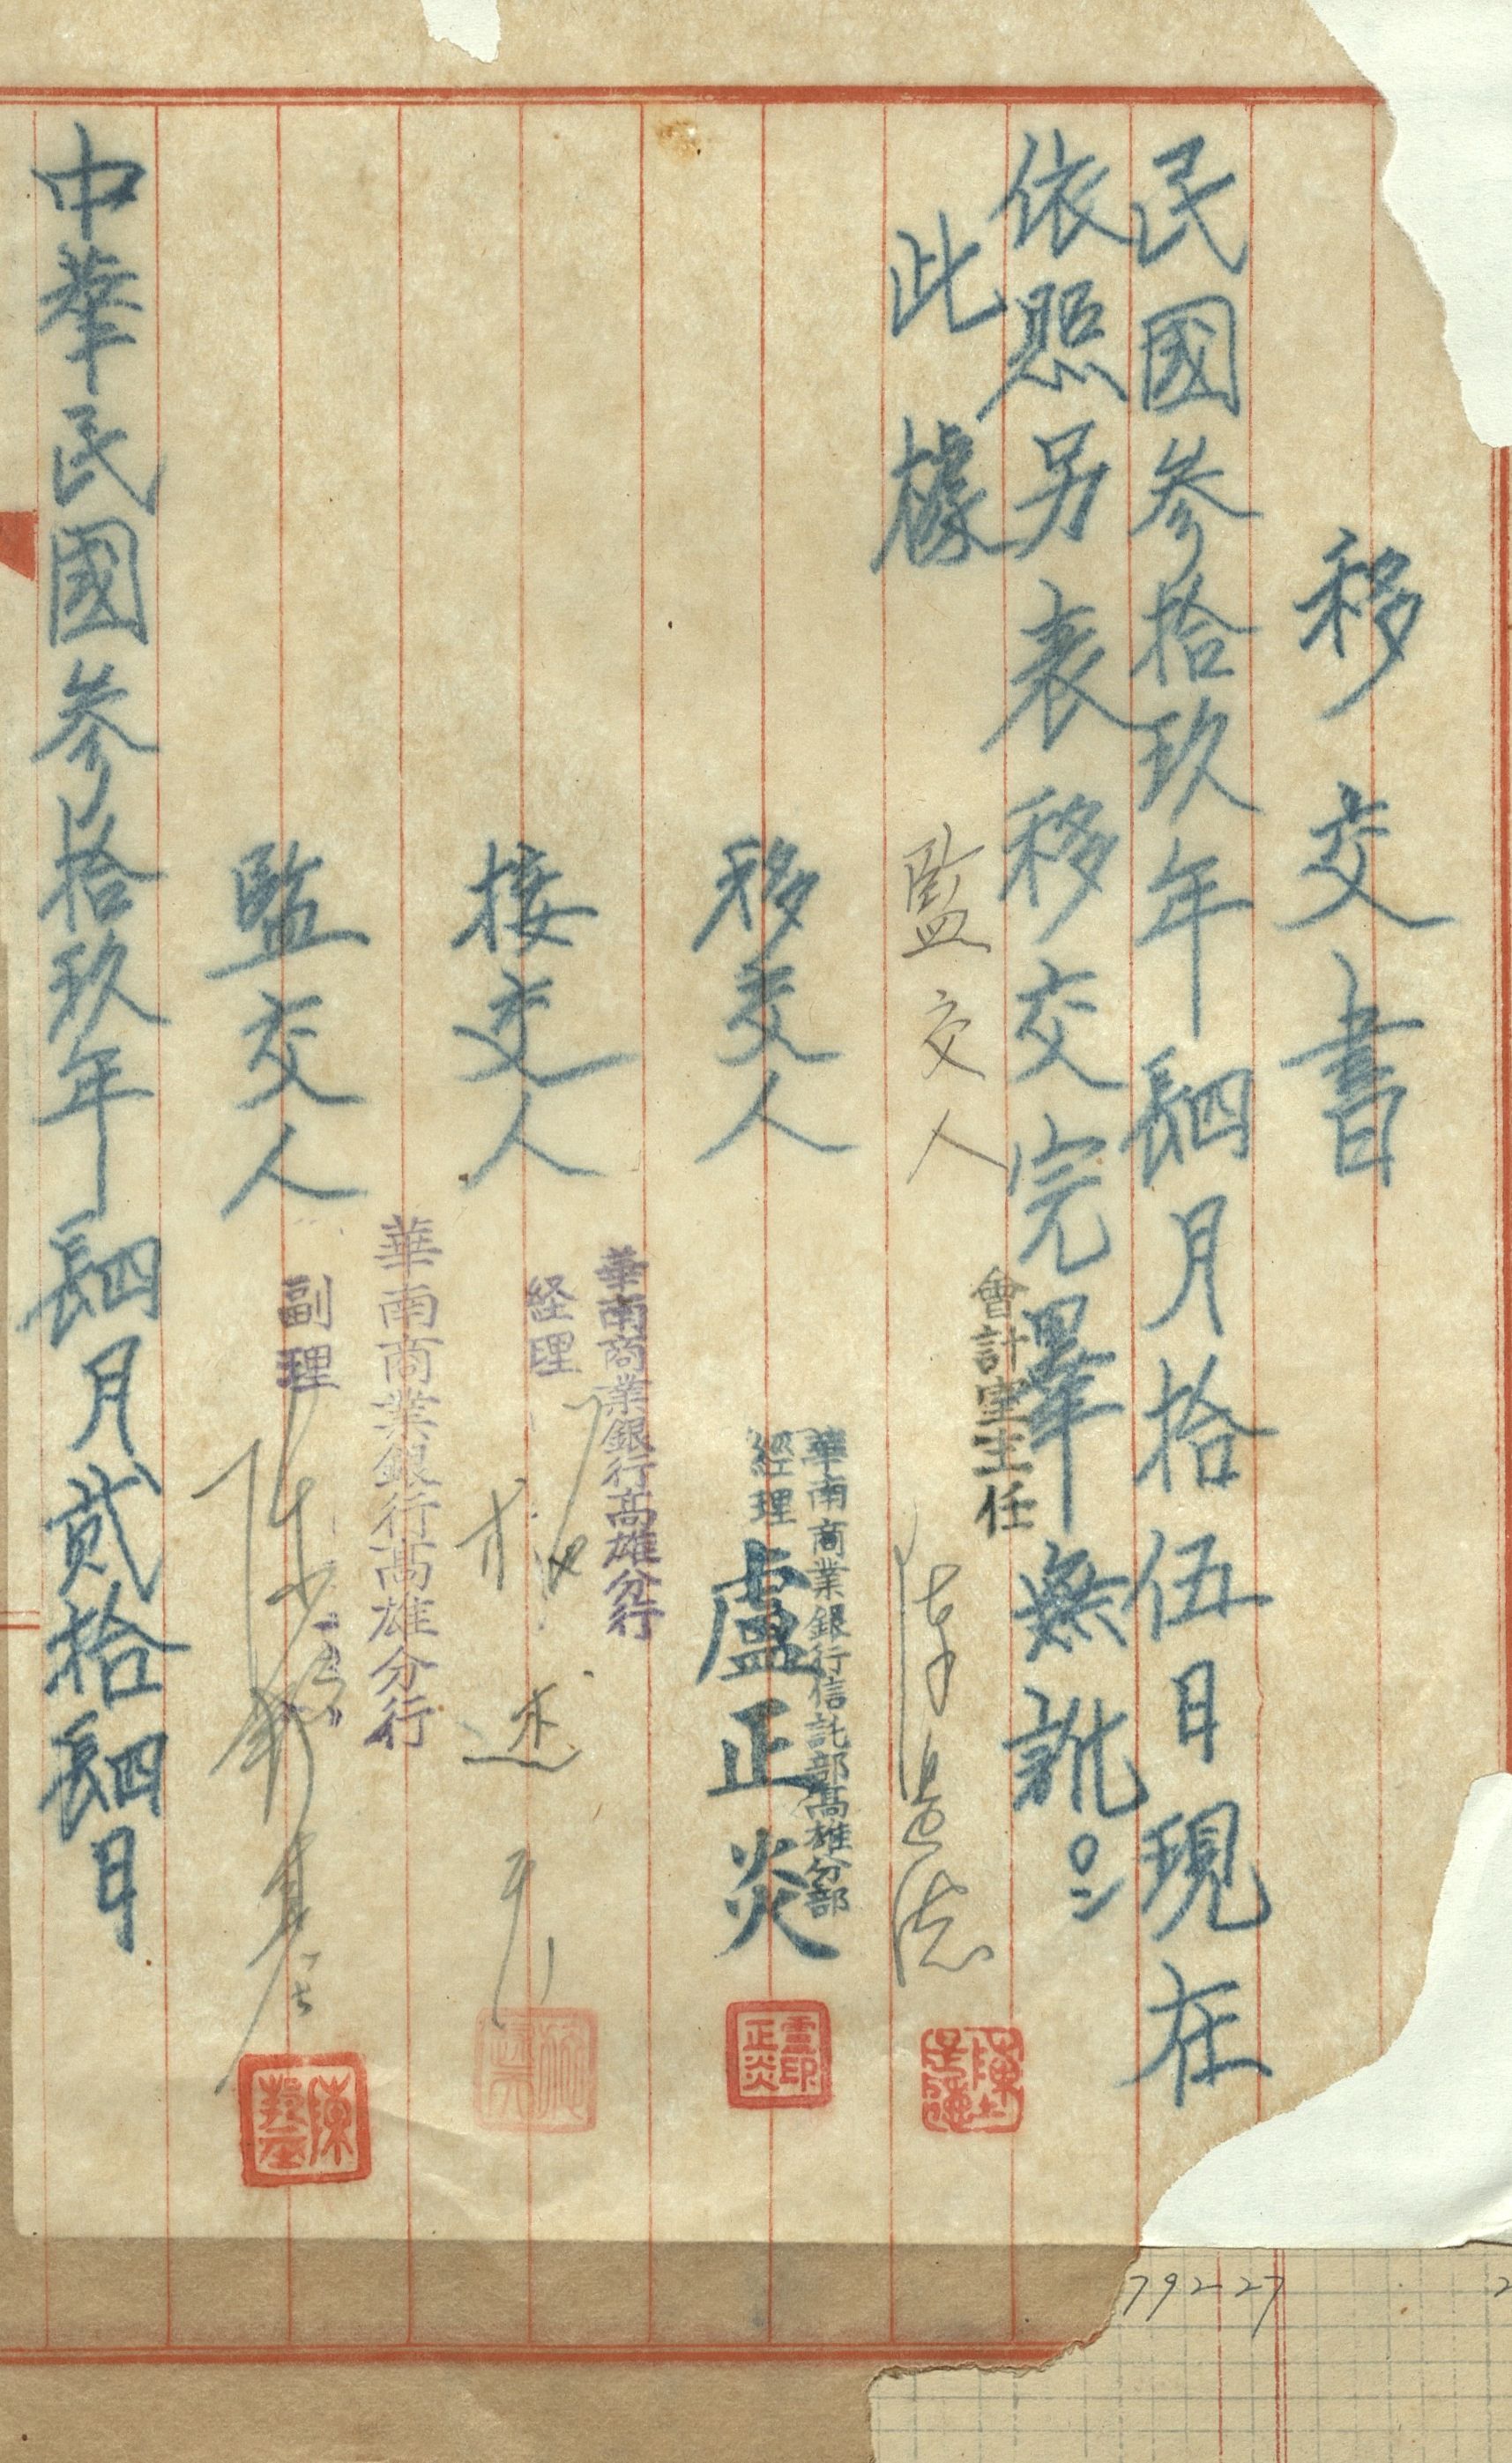 移交書
民國參拾玖年肆月拾伍日現在
依照另表移交完畢無訛。
此據
監交人
會計室主任
移交人
華南商業銀行信託部高雄分部
經理 盧正炎
接交人
華南商業銀行高雄分行
経理
監交人
華南商業銀行高雄分行
副理
中華民國參拾玖年肆月貳拾肆日
79227